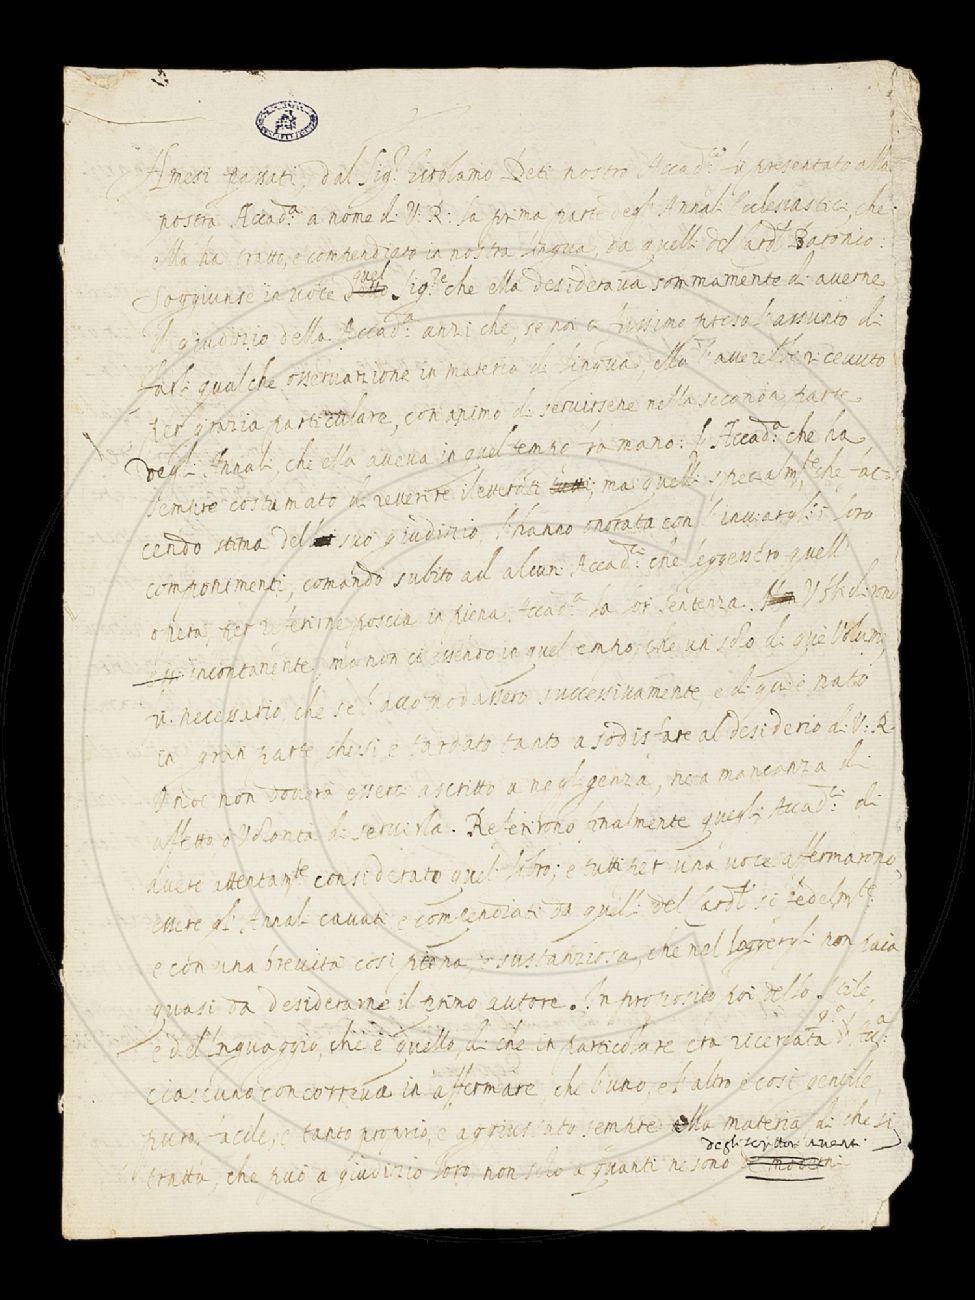 A mesi passati, dal Sig.r Girolamo Deti nostro Accad.co fu presentato alla
nostra Accad.a a nome di V: R: la prima parte degl' Annali Ecclesiastici, che
ella ha tratto, e compendiato in nostra lingua, da quelli del Card.l Baronio:
soggiunse in voce quel Sig.re che ella desiderava sommamente di averne
il giudizio della Accad.a anzi che, se noi ci fussimo preso l'assunto di
farli qualche osservazione in materia di lingua, ella l'averebbe ricevuto
per grazia particulare, con animo di servirsene nella seconda parte
degl' Annali, che ella aveva in quel tempo fra mano: l'Accad.a che ha
sempre costumato di reverire i letterati tutti, ma quelli specialm.te che fac-
cendo stima del suo giudizio, l'hanno onorata con l'inviargl'i loro
componimenti, comandò subito ad alcuni Accad.ci che leggessero quell'
opera, per referirne poscia in piena Accad.a la lor sentenza. Ubbidirono
incontanente, ma non ci essendo in quel tempo che un solo di que' Volumi,
fu necessario, che se l'accomodassero successivamente e di qui è nato
in gran parte, che si è tardato tanto a sodisfare al desiderio di V: R.
il che non doverà esserci ascritto a negligenza, ne a mancanza di
affetto o volontà di servirla. Referirono finalmente quegli Accad.ci di
avere attentam.te considerato quel libro; e tutti per una voce affermarono
essere gl' Annali cavati e compendiati da quelli del Card.l sì fedelm.te
e con una brevità così piena, e sustanziosa, che nel leggergli non paia
quasi da desiderarne il primo autore. In proposito poi dello stile,
e del linguaggio, che è quello, di che in particolare era ricercata q.a Acc.a
ciascuno concorreva in affermare, che l'uno, e l'altro è così gentile,
puro, facile, e tanto proprio, e aggiustato sempre alla materia di che si
degli scrittori viventi
tratta, che può a giudizio loro, non solo a quanti ne sono de moderni